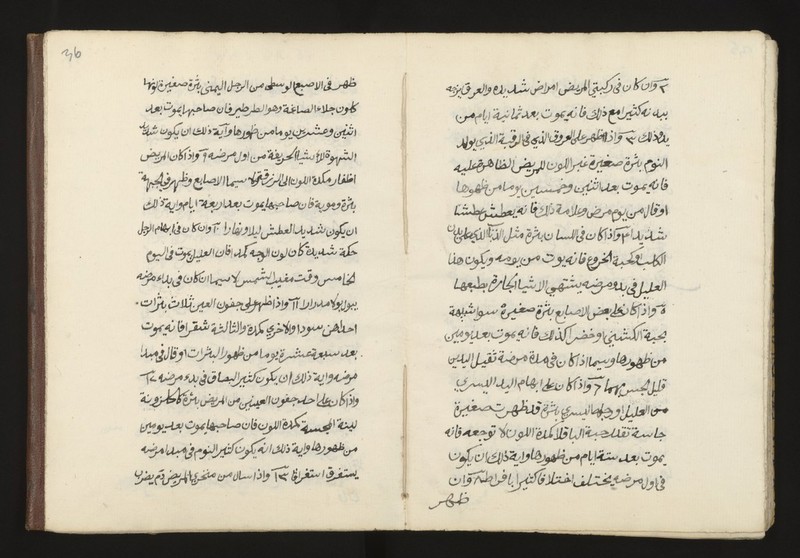 ٢ وان كان في ركبتي المريض امراض شديده والعرق يزعه
بدنه كثيرا مع ذلك فانه يموت بعد ثمانية ايام من
بدو ذلك ٣ واذا ظهر على العروق الذي في الرقبة الذي يولد
النوم بثرة صغيرة غبر اللون للمريض الظاهرة عليه
فانه يموت بعد اثنين وخمسين يوما من ظهورها
او قال من يوم مرض وعلامة ذلك فانه يعطش عطشا
شديدا ٤ واذا كان في اللسان بثرة مثل الذباب
الكلب او كحبة الخروع فانه يموت من يومه ويكون هذا
العليل في بدء مرضه يشتهي الاشيا الحارة بطبعها
٥ واذا كان على بعض الاصابع بثرة صغيرة سودا شبيهة
بحبة الكشني واخضر كذلك فانه يموت بعد يومين
من ظهورها وسيما اذا كان في مدة مرضه ثقيل اليدين
قليل الحس بهما ٦ واذا كان على ابهام اليد اليسري
من العليل او رجله اليسري بثرة قد ظهرت صغيرة
جاسة تقدر حبة الباقلا كمدة اللون لا توجعه فانه
يموت بعد ستة ايام من ظهورها واية ذلك ان يكون
في اول مرضه يختلف اختلافا كثيرا بافراط ٨ وان
ظهر
36
ظهر في الاصبع الوسطى من الرجل اليمنى بثرة صغيرة لونها
كلون جلاء الصاغة وهو الطرطير فان صاحبها يموت بعد
اثنين وعشرين يوما من ظهورها وآية ذلك ان يكون شديد
الشهوة للاشيا الحريفة من اول مرضه ٩ واذا كان المريض
اظفار مكمدة اللون الى الزرقة سيما الاصابع وظهر في الجبهة
بثرة دموية فان صاحبها يموت بعد اربعة ايام واية ذلك
ان يكون شديد العطش ليلا ونهارا ١٠ وان كان في ابهام الرجل
حكة شديدة كان لون الوجه كمدا فان العليل يموت في اليوم
الخامس وقت مغيب الشمس لا سيما ان كان في بداء مرضه
يبول بولا مدرارا ١١ واذا ظهر على جفون العين ثلاث بثرات
احداهن سودا والاخري كمدة والثالثة شقرا فانه يموت
بعد سبعة عشرة يوما من ظهور البثرات او قال في مبدا
مرضه واية ذلك ان يكون كثير البصاق في بدء مرضه ١٢
واذا كان على احد جفون العينين من المريض بثرة كالجوزة
لينة المجسة كمدة اللون فان صاحبها يموت بعد يومين
من ظهورها واية ذلك انه يكون كثير النوم في مبدا مرضه
يستغرق استغراقا ١٣ واذا سال من منخري المريض دم يضرب